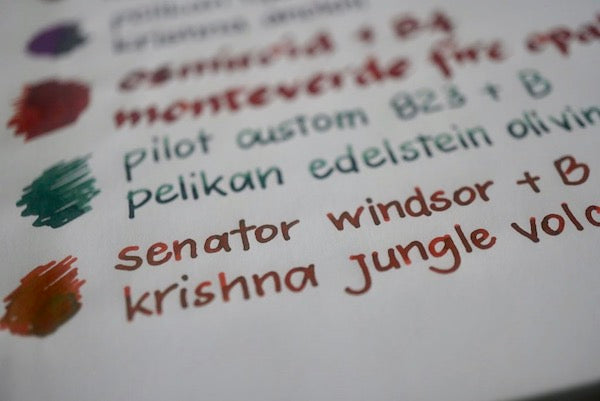 krishna
osmiroid + B4
monteverde fire opal
pilot custom 823 + B
pelikan edelstein olivin
senator windsor + B
krishna jungle volc